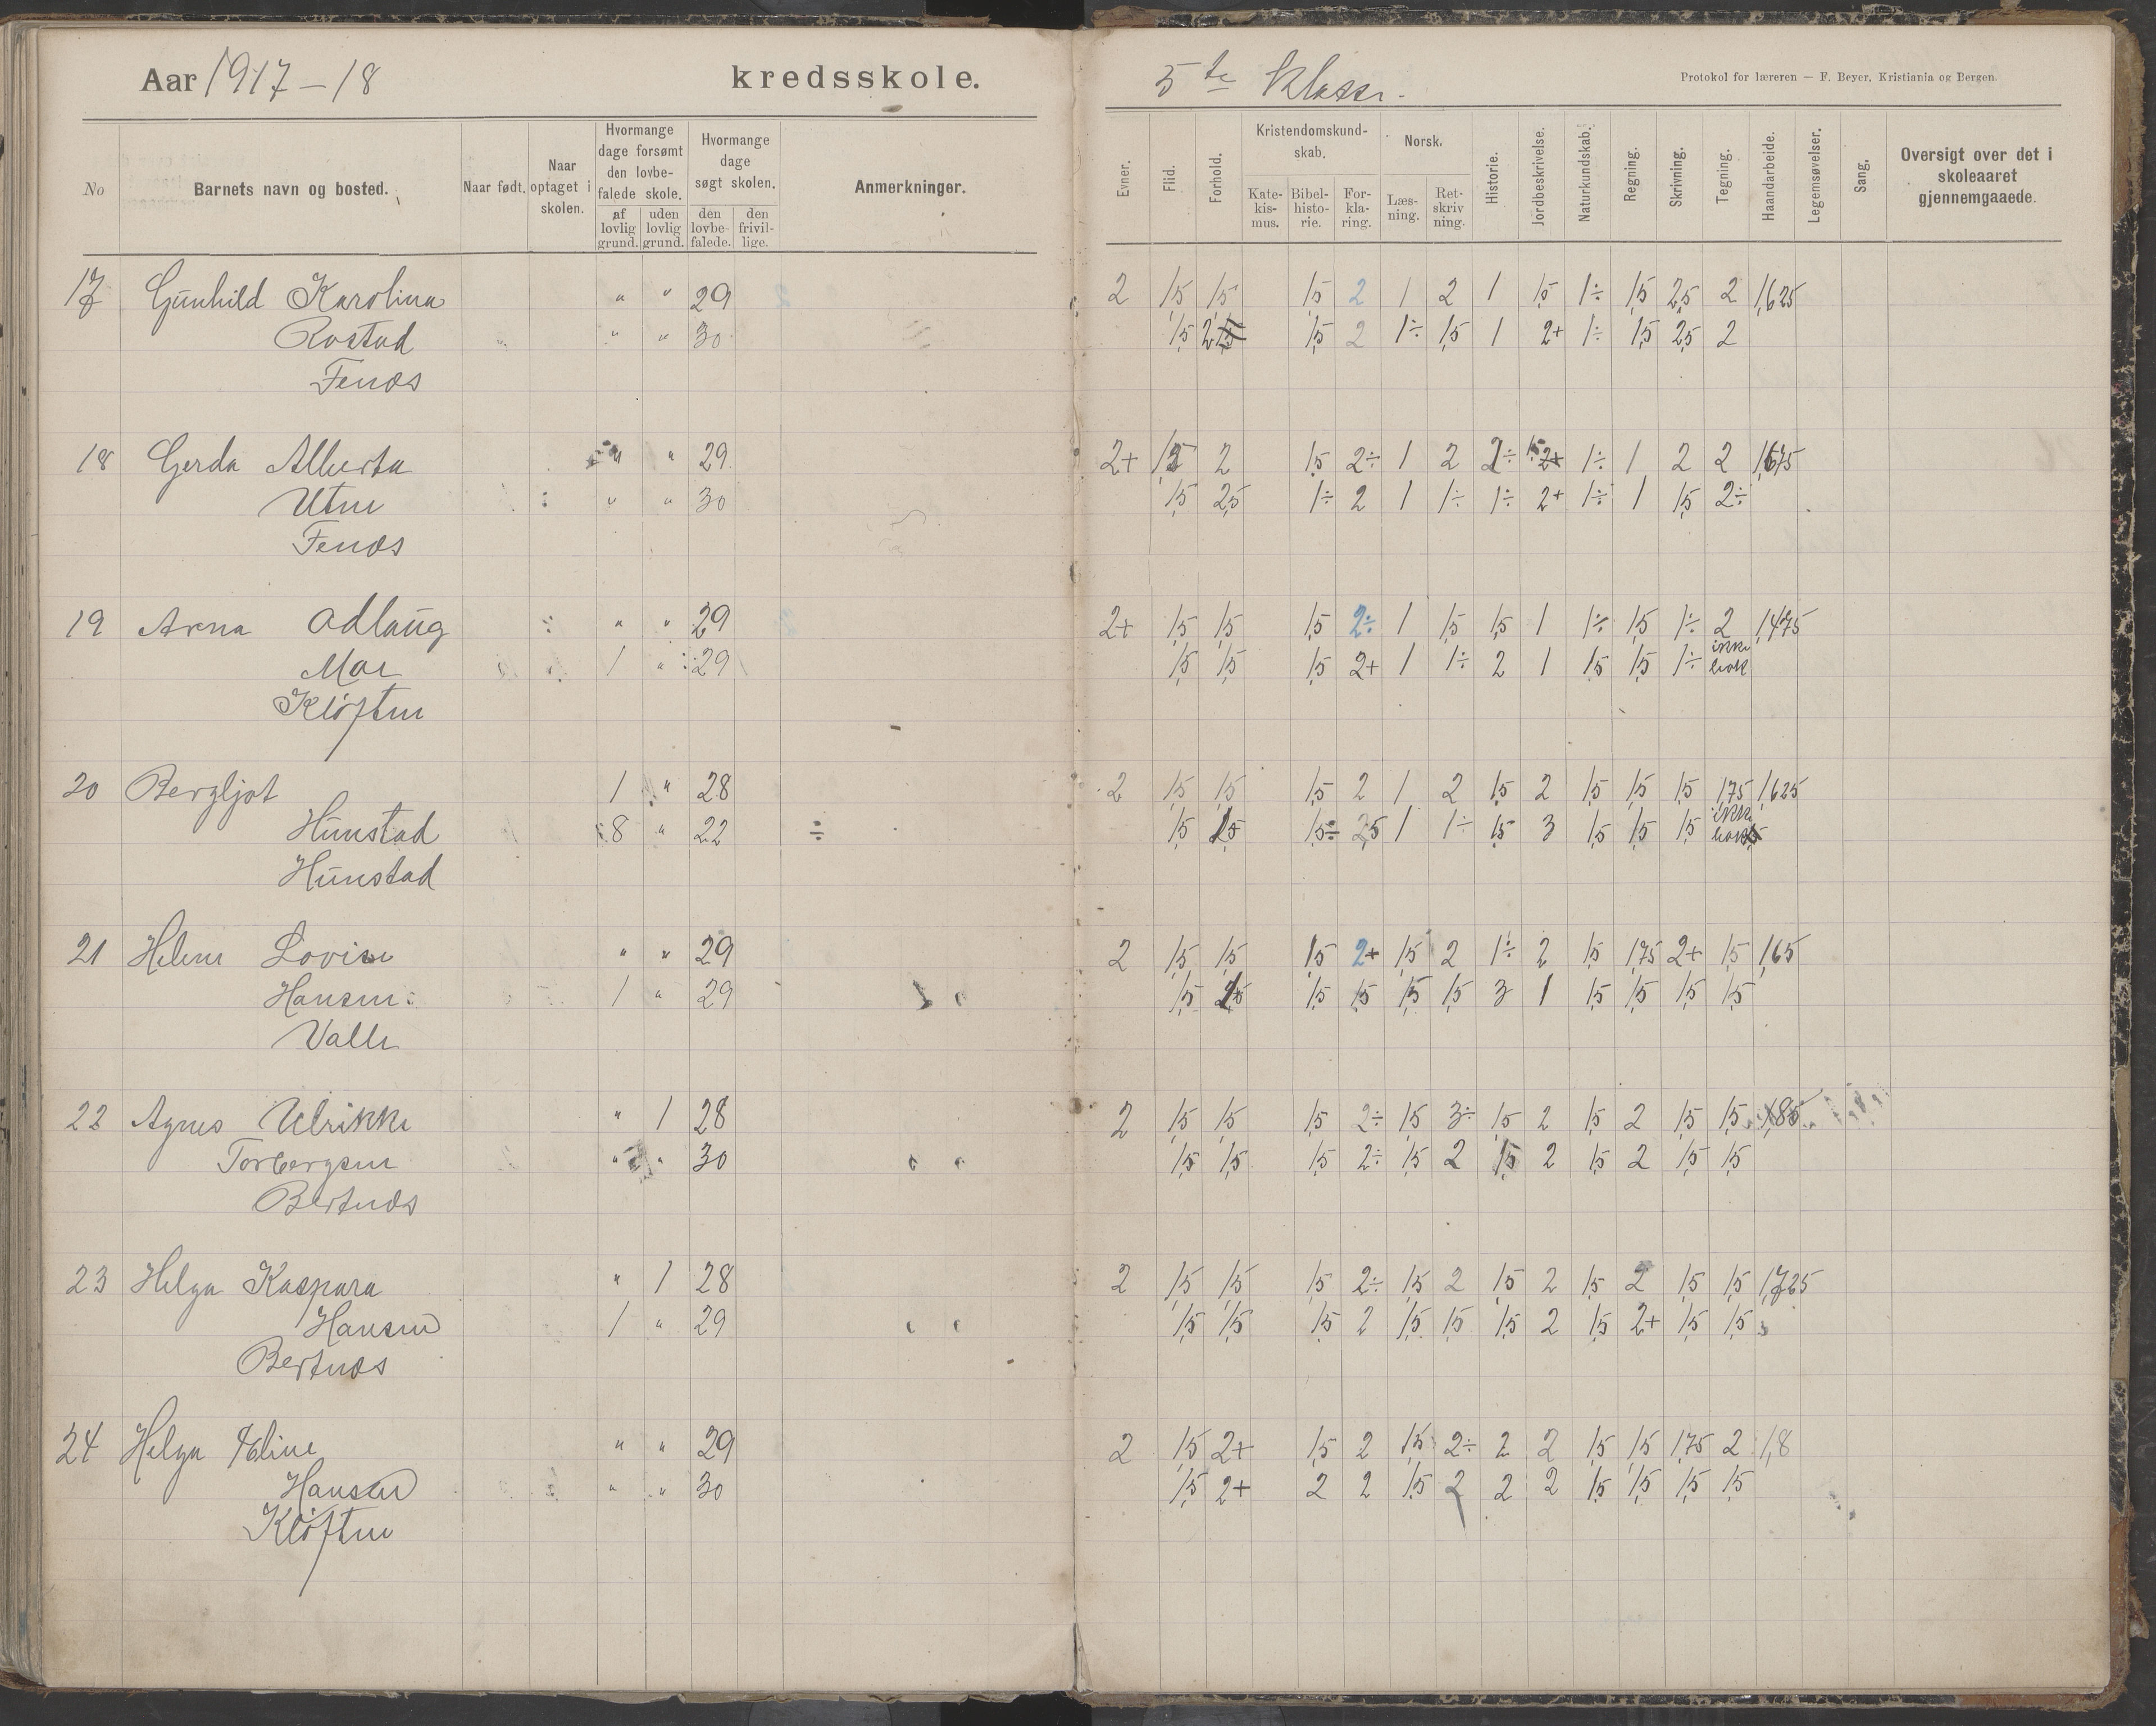 Aar 1917-18 kredsskole.
5te Klasse.
Protokol for læreren — F. Beyer, Kristiania og Bergen.
No
Barnets navn og bosted.
Naar født.
Naar optaget i skolen.
Hvormange dage forsømt den lovbefalede skole.
af lovlig grund.
uden lovlig grund.
Hvormange dage søgt skolen.
den lovbefalede.
den frivillige.
Anmerkninger.
Evner.
Flid.
Forhold.
Kristendomskundskab.
Katekismus.
Bibelhistorie.
Forklaring.
Norsk.
Læsning.
Retskrivning.
Historie.
Jordbeskrivelse.
Naturkundskab.
Regning.
Skrivning.
Tegning.
Haandarbeide.
Legemsøvelser.
Sang.
Oversigt over det i skoleaaret gjennemgaaede.
17 Gunhild Karolina " " 29 2 1,5 1,5 1,5 2 1 2 1 1,5 1÷ 1,5 2,5 2 1,625
Rostad " " 30 1,5 2 1,5 2 1÷ 1,5 1 2+ 1÷ 1,5 2,5 2
Fenes
18 Gerda Alberta " " 29 2+ 2 1,5 2÷ 1 2 2÷ 1÷ 1 2 2 1,675
Utne " " 30 1,5 2,5 1÷ 2 1 1÷ 1÷ 2+ 1÷ 1 1,5 2÷
Fenes
19 Arna Odlaug " " 29 2+ 1,5 1,5 1,5 2÷ 1 1,5 1,5 1 1÷ 1,5 1÷ 2 1,475
Moe 1 " 29 1,5 1,5 1,5 2+ 1 1÷ 2 1 1,5 1,5 1÷ ikke bok
Kløften
20 Bergljot 1 " 28 2 1,5 1,5 1,5 2 1 2 1,5 2 1,5 1,5 1,5 1,75 1,625
Hunstad 8 " 22 ÷ 1,5 1,5÷ 2,5 1 1÷ 1,5 3 1,5 1,5 1,5 ikke bok
Hunstad
21 Helene Lovise " " 29 2 1,5 1,5 1,5 2+ 1,5 2 1÷ 2 1,5 1,75 2+ 1,5 1,65
Hansen 1 " 29 1,5 1,5 1,5 1,5 1,5 3 1 1,5 1,5 1,5 1,5
Valle
22 Agnes Ulrikke " 1 28 2 1,5 1,5 1,5 2÷ 1,5 3÷ 1,5 2 1,5 2 1,5 1,5 1,85
Torbergsen " " 30 1,5 1,5 1,5 2÷ 1,5 2 1,5 2 1,5 2 1,5 1,5
Bertnes
23 Helga Kaspara " 1 28 2 1,5 1,5 1,5 2÷ 1,5 2 1,5 2 1,5 2 1,5 1,5 1,725
Hansen 1 " 29 1,5 1,5 1,5 2 1,5 1,5 1,5 2 1,5 2+ 1,5 1,5
Bertnes
24 Helga Eline " " 29 2 1,5 2+ 1,5 2 1,5 2÷ 2 2 1,5 1,5 1,75 2 1,8
Hansen " " 30 1,5 2+ 2 2 1,5 2 2 2 1,5 1,5 1,5 1,5
Kløften